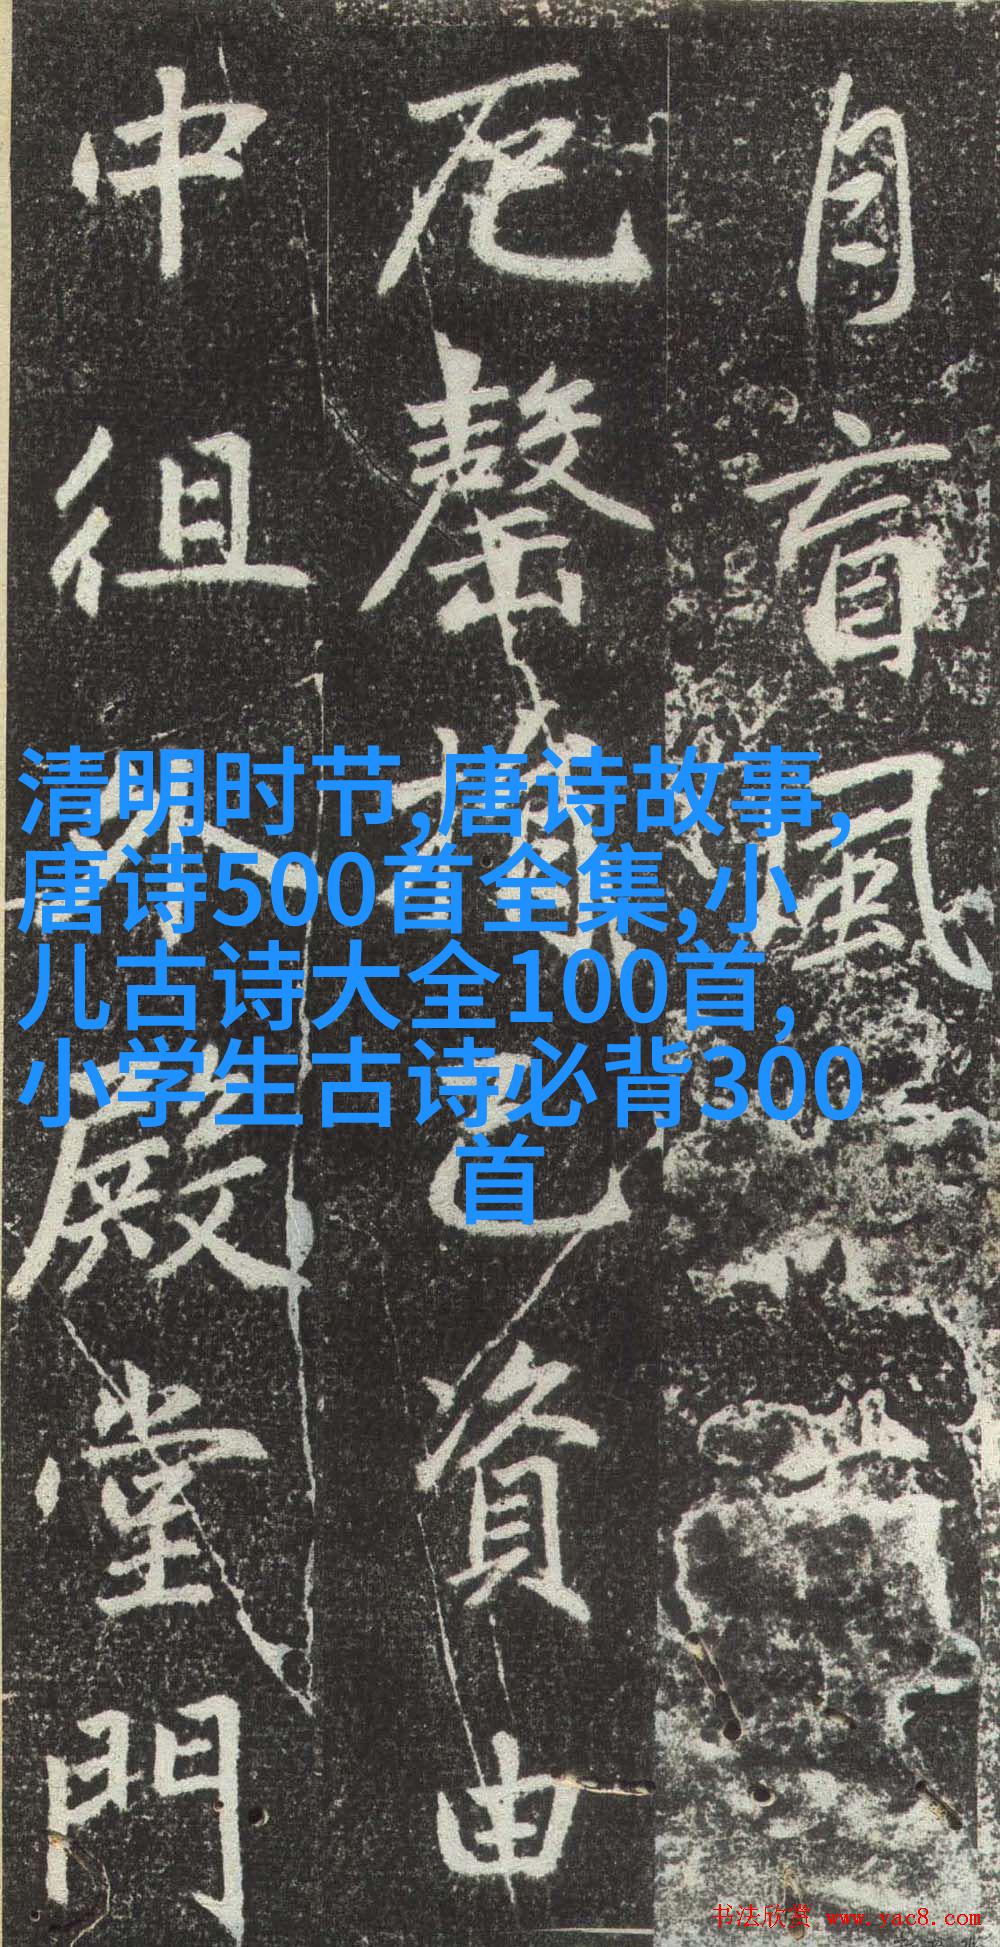 盲風
罄已資由
中徂殿堂門
清明时节,唐诗故事,
唐诗500首全集,小
儿古诗大全100首,
小学生古诗必背300
首
书法欣赏 www.yac8.com